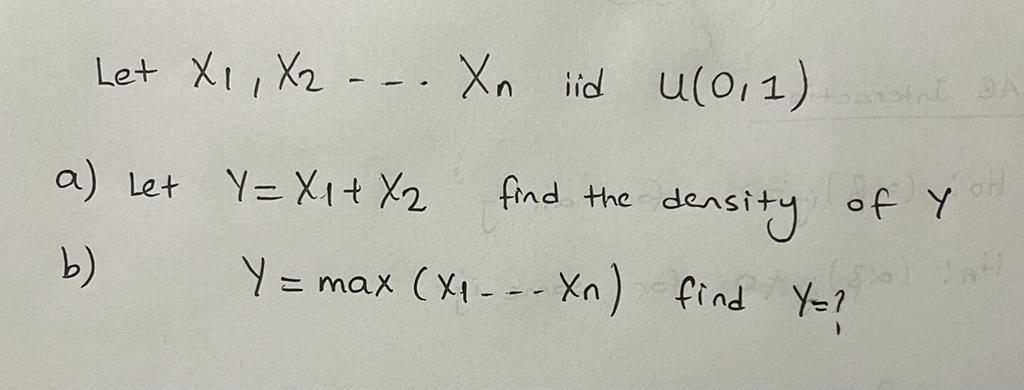 Let X1, X2 ---. Xn iid U(0,1)
a) Let Y= X1+ X2 find the density of Y
b) Y = max (X1--- Xn) find Y=?